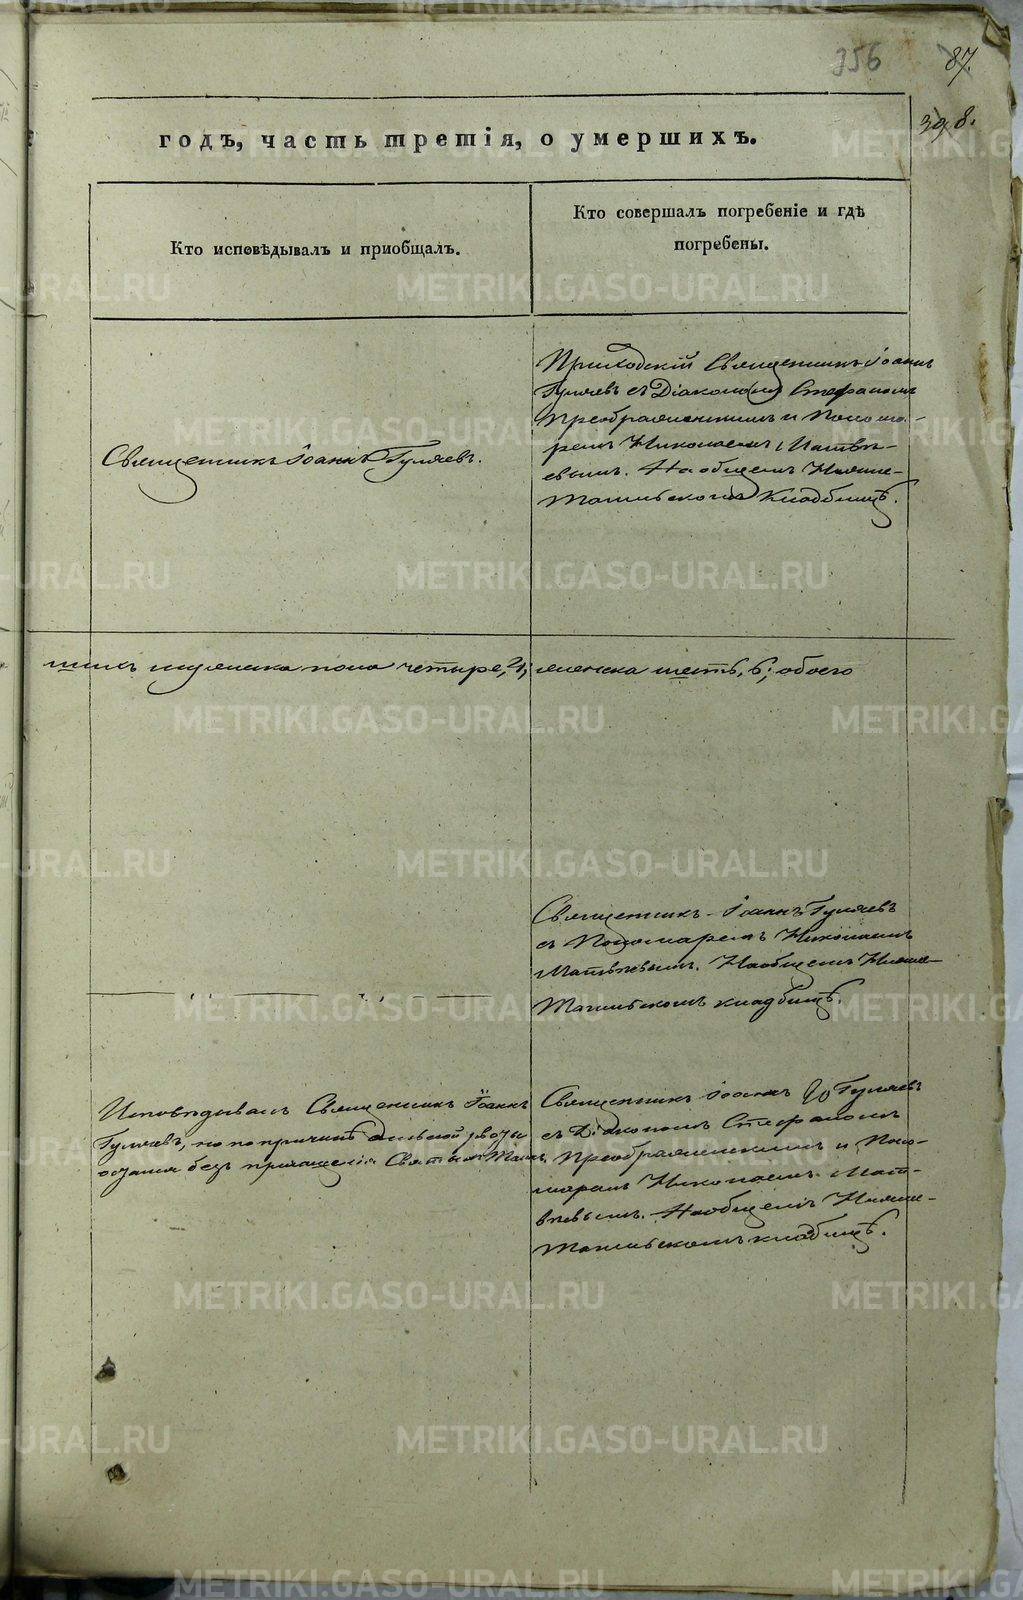 356 87.
398.
годъ, часть третія, о умершихъ.
Кто исповѣдывалъ и приобщалъ.
Кто совершалъ погребеніе и гдѣ
погребены.
Священникъ Іоаннъ Гуляевъ.
Приходскій Священникъ Іоаннъ
Гуляевъ съ Діакономъ Стефаномъ
Преображенскимъ и Понома-
ремъ Николаемъ Матвѣ-
евымъ. На общемъ Нижне-
Тагильскомъ кладбищѣ.
шихъ мужеска пола четыре, 4; женска шесть, 6; обоего
Священникъ Іоаннъ Гуляевъ
съ Пономаремъ Николаемъ
Матвѣевымъ. На общемъ Нижне-
Тагильскомъ кладбищѣ.
Исповѣдывалъ Священникъ Іоаннъ
Гуляевъ, но по причинѣ рвоты
осталси безъ приощенія Святыхъ Таинъ.
Священникъ Іоаннъ Гуляевъ
съ Діакономъ Стефаномъ
Преображенскимъ и Поно-
маремъ Николаемъ Мат-
вѣевымъ. На общемъ Нижне-
Тагильскомъ кладбищѣ.
METRIKI.GASO-URAL.RU